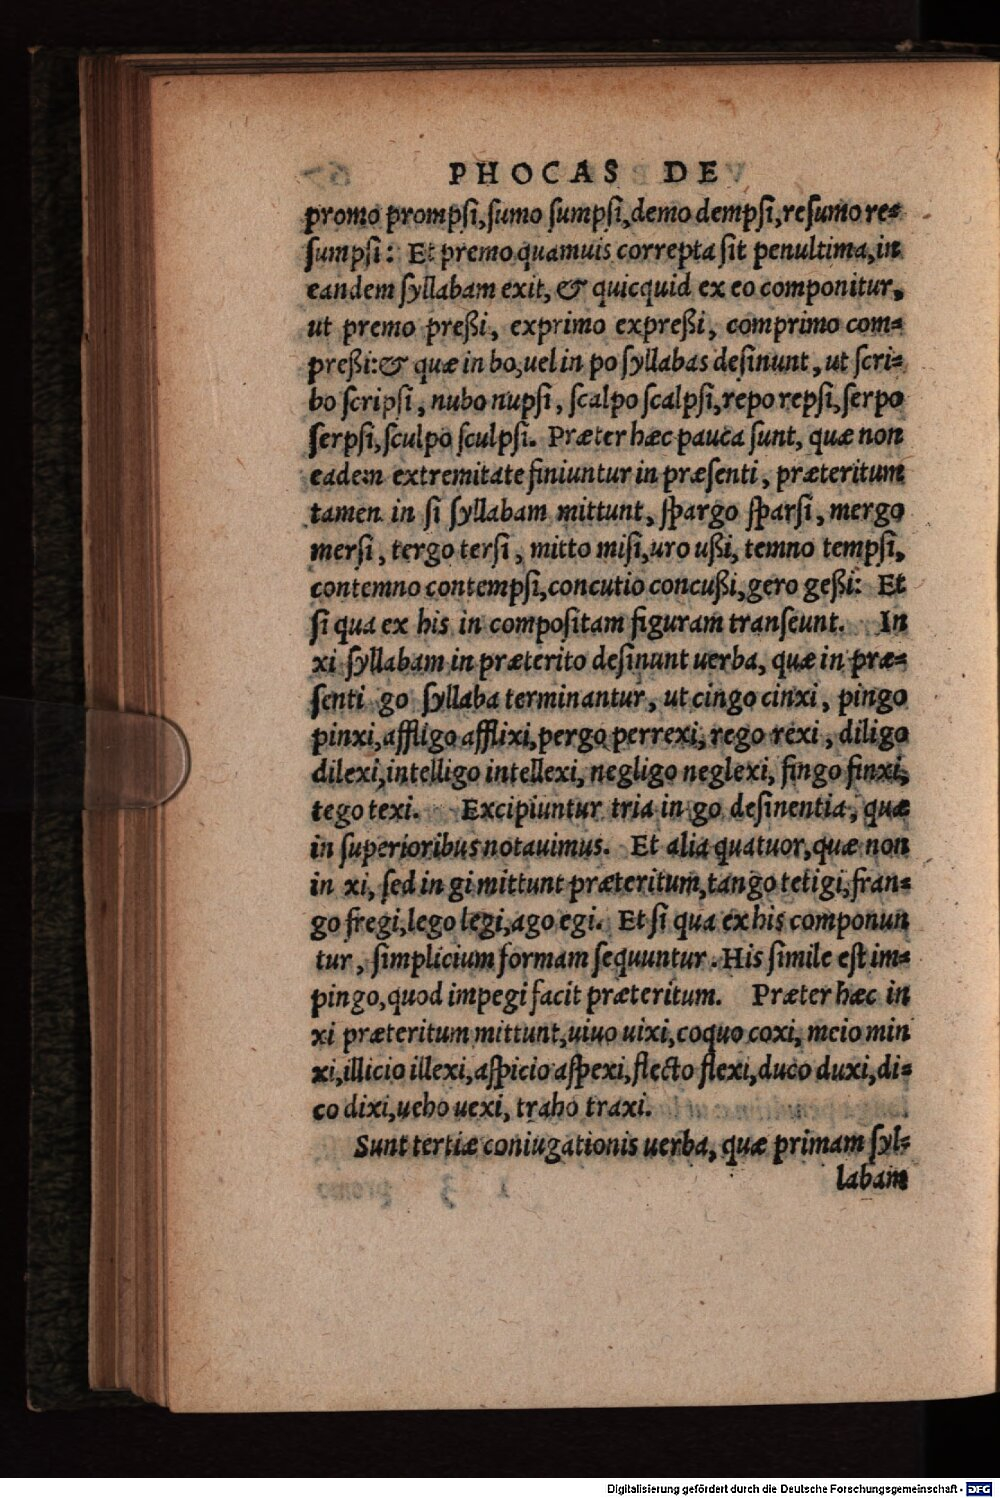 PHOCAS DE
promo prompſi, ſumo ſumpſi, demo dempſi, reſumo re=
ſumpſi: Et premo quamuis correpta ſit penultima, in
eandem ſyllabam exit, & quicquid ex eo componitur,
ut premo preßi, exprimo expreßi, comprimo com=
preßi: & quæ in bo, uel in po ſyllabas deſinunt, ut ſcri=
bo ſcripſi, nubo nupſi, ſcalpo ſcalpſi, repo repſi, ſerpo
ſerpſi, ſculpo ſculpſi. Præter hæc pauca ſunt, quæ non
eadem extremitate finiuntur in præſenti, præteritum
tamen in ſi ſyllabam mittunt, ſpargo ſparſi, mergo
merſi, tergo terſi, mitto miſi, uro ußi, temno tempſi,
contemno contempſi, concutio concußi, gero geßi: Et
ſi qua ex his in compoſitam figuram tranſeunt. In
xi ſyllabam in præterito deſinunt uerba, quæ in præ=
ſenti go ſyllaba terminantur, ut cingo cinxi, pingo
pinxi, affligo afflixi, pergo perrexi, rego rexi, diligo
dilexi, intelligo intellexi, negligo neglexi, fingo finxi,
tego texi. Excipiuntur tria in go deſinentia, quæ
in ſuperioribus notauimus. Et alia quatuor, quæ non
in xi, ſed in gi mittunt præteritum, tango tetigi, fran=
go fregi, lego legi, ago egi. Et ſi qua ex his componun
tur, ſimplicium formam ſequuntur. His ſimile eſt im=
pingo, quod impegi facit præteritum. Præter hæc in
xi præteritum mittunt, uiuo uixi, coquo coxi, meio min
xi, illicio illexi, aſpicio aſpexi, flecto flexi, duco duxi, di=
co dixi, ueho uexi, traho traxi.
Sunt tertiæ coniugationis uerba, quæ primam ſyl=
labam
Digitalisierung gefördert durch die Deutsche Forschungsgemeinschaft - DFG